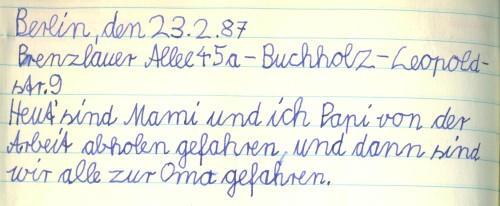 Berlin, den 23.2.87
Prenzlauer Allee 45a-Buchholz-Leopold-
str.9
Heut' sind Mami und ich Papi von der
Arbeit abholen gefahren, und dann sind
wir alle zur Oma gefahren.